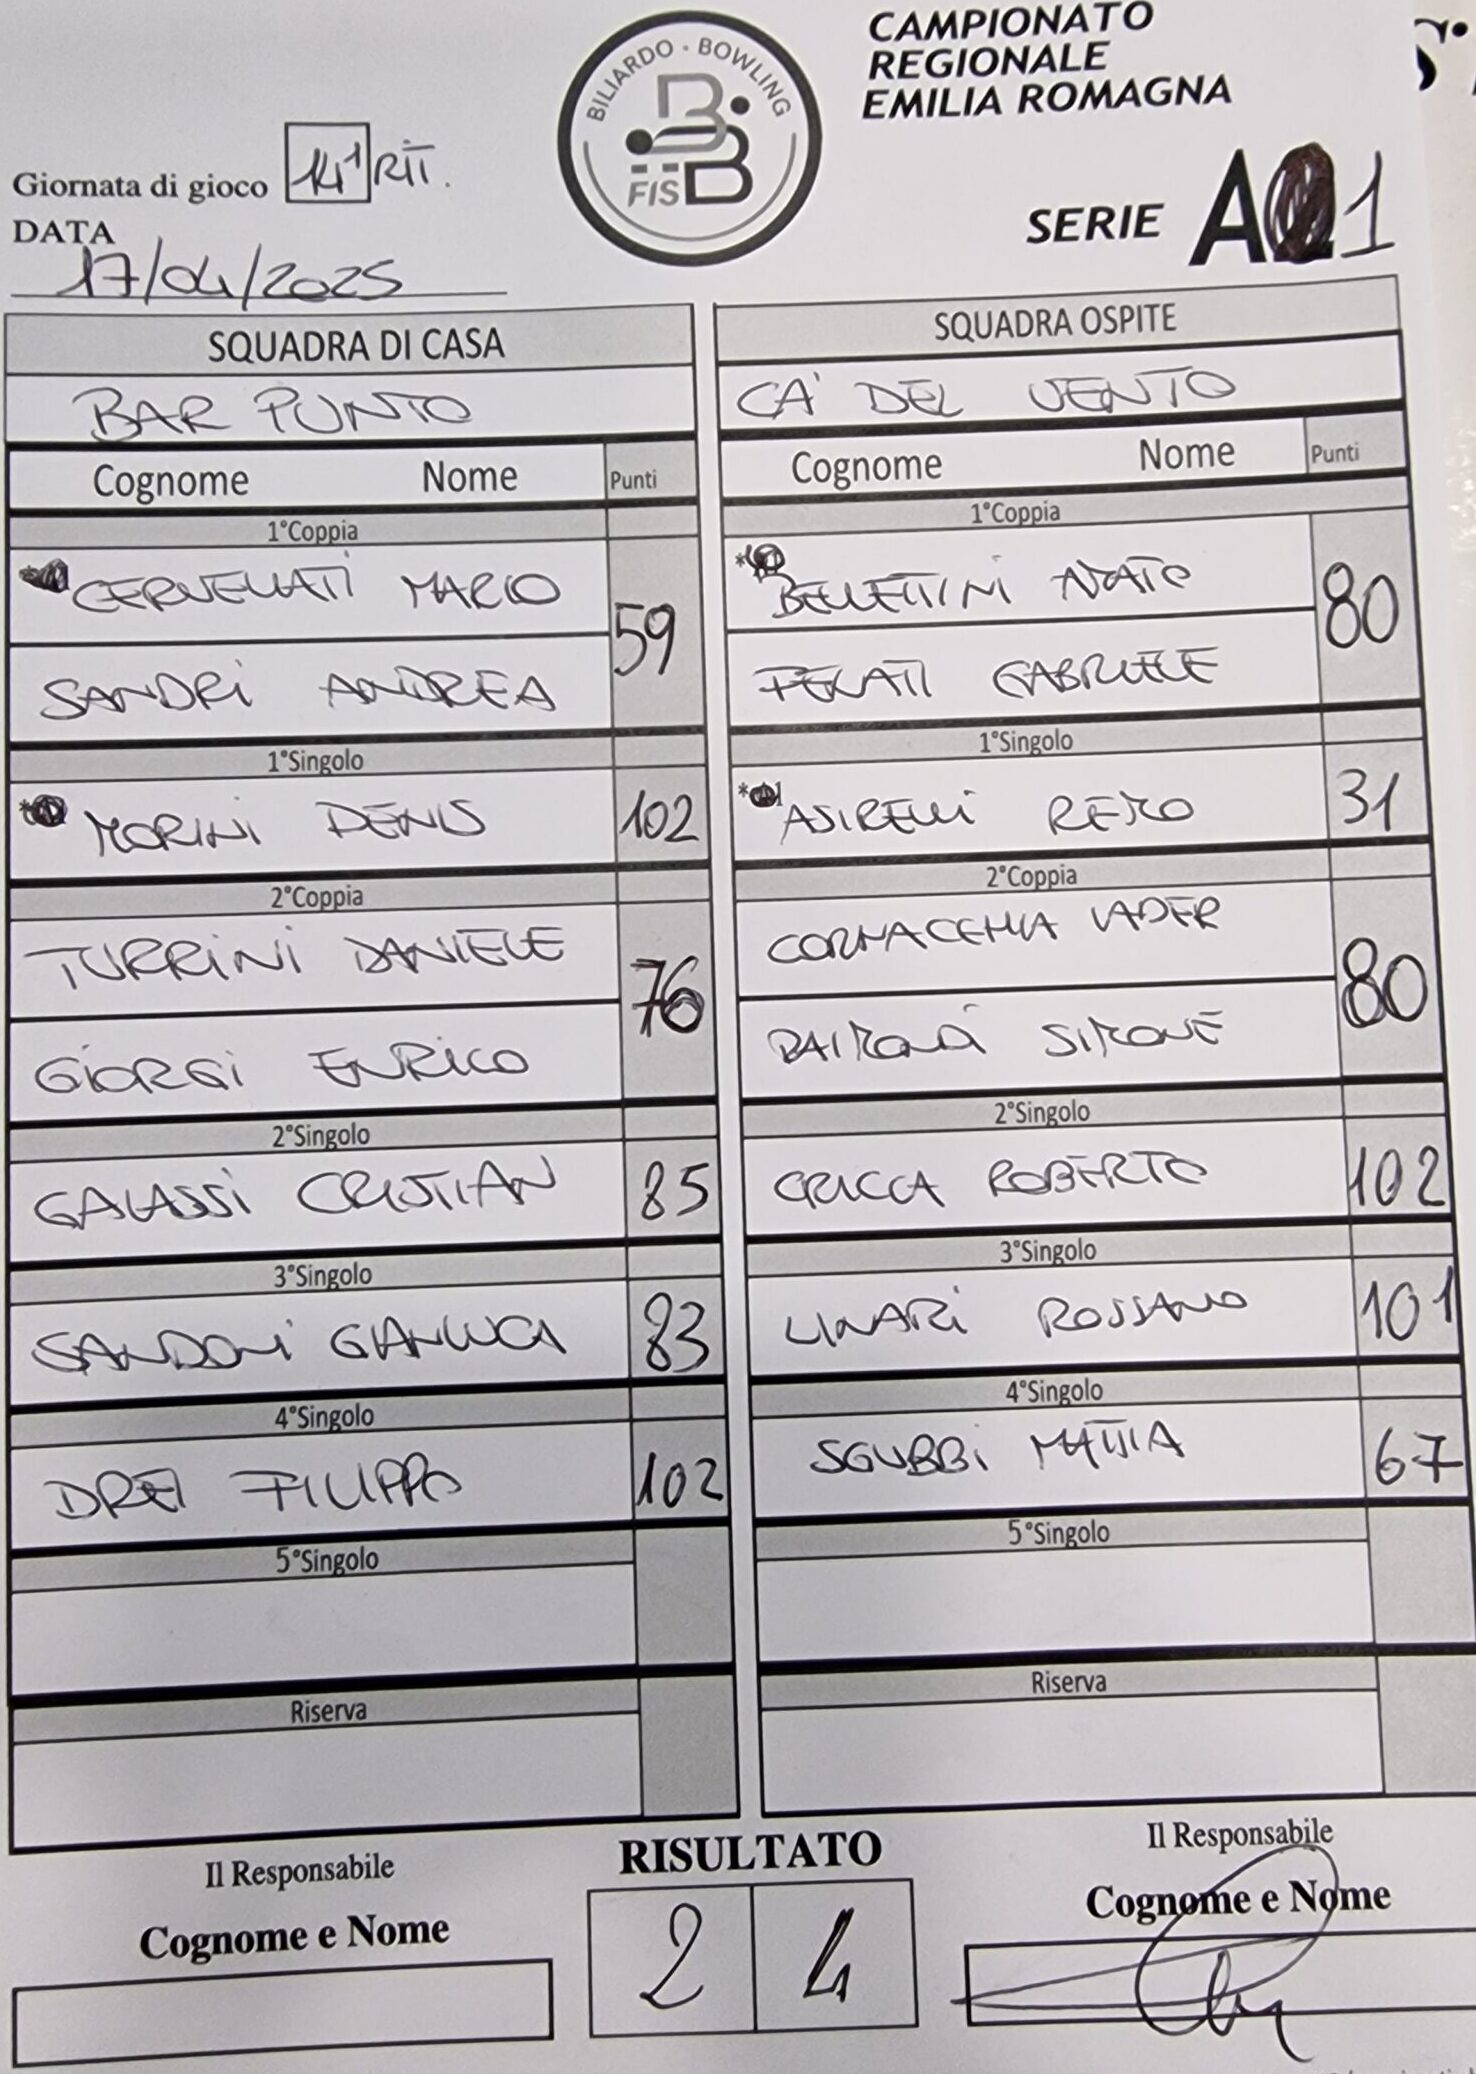 CAMPIONATO
REGIONALE
EMILIA ROMAGNA
BILIARDO · BOWLING
FISBB
Giornata di gioco 14ª RIT.
DATA
17/04/2025
SERIE A 1
SQUADRA DI CASA
BAR PUNTO
Cognome Nome Punti
1°Coppia
CERVELLATI MARIO
59
SANDRI ANDREA
1°Singolo
MORINI DENIS 102
2°Coppia
TURRINI DANIELE
76
GIORGI ENRICO
2°Singolo
GALASSI CRISTIAN 85
3°Singolo
SANDONI GIANLUCA 83
4°Singolo
DREI FILIPPO 102
5°Singolo
Riserva
Il Responsabile
Cognome e Nome
SQUADRA OSPITE
CA' DEL VENTO
Cognome Nome Punti
1°Coppia
BELLETTINI
80
GABRIELE
1°Singolo
ASIRELLI REMO 31
2°Coppia
CORNACCHIA VADER
80
RAIMONDI SIMONE
2°Singolo
CRICCA ROBERTO 102
3°Singolo
LINARI ROSSANO 101
4°Singolo
SGUBBI MATTIA 67
5°Singolo
Riserva
RISULTATO
2 4
Il Responsabile
Cognome e Nome